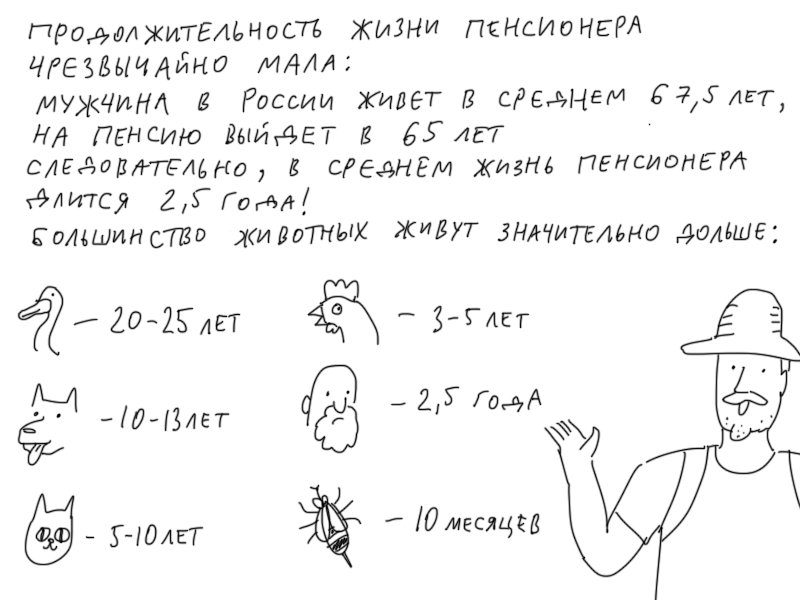 ПРОДОЛЖИТЕЛЬНОСТЬ ЖИЗНИ ПЕНСИОНЕРА
ЧРЕЗВЫЧАЙНО МАЛА:
МУЖЧИНА В РОССИИ ЖИВЕТ В СРЕДНЕМ 67,5 ЛЕТ,
НА ПЕНСИЮ ВЫЙДЕТ В 65 ЛЕТ
СЛЕДОВАТЕЛЬНО, В СРЕДНЕМ ЖИЗНЬ ПЕНСИОНЕРА
ДЛИТСЯ 2,5 ГОДА!
БОЛЬШИНСТВО ЖИВОТНЫХ ЖИВУТ ЗНАЧИТЕЛЬНО ДОЛЬШЕ:
— 20-25 ЛЕТ
— 3-5 ЛЕТ
-10-13 ЛЕТ
— 2,5 ГОДА
- 5-10 ЛЕТ
— 10 МЕСЯЦЕВ